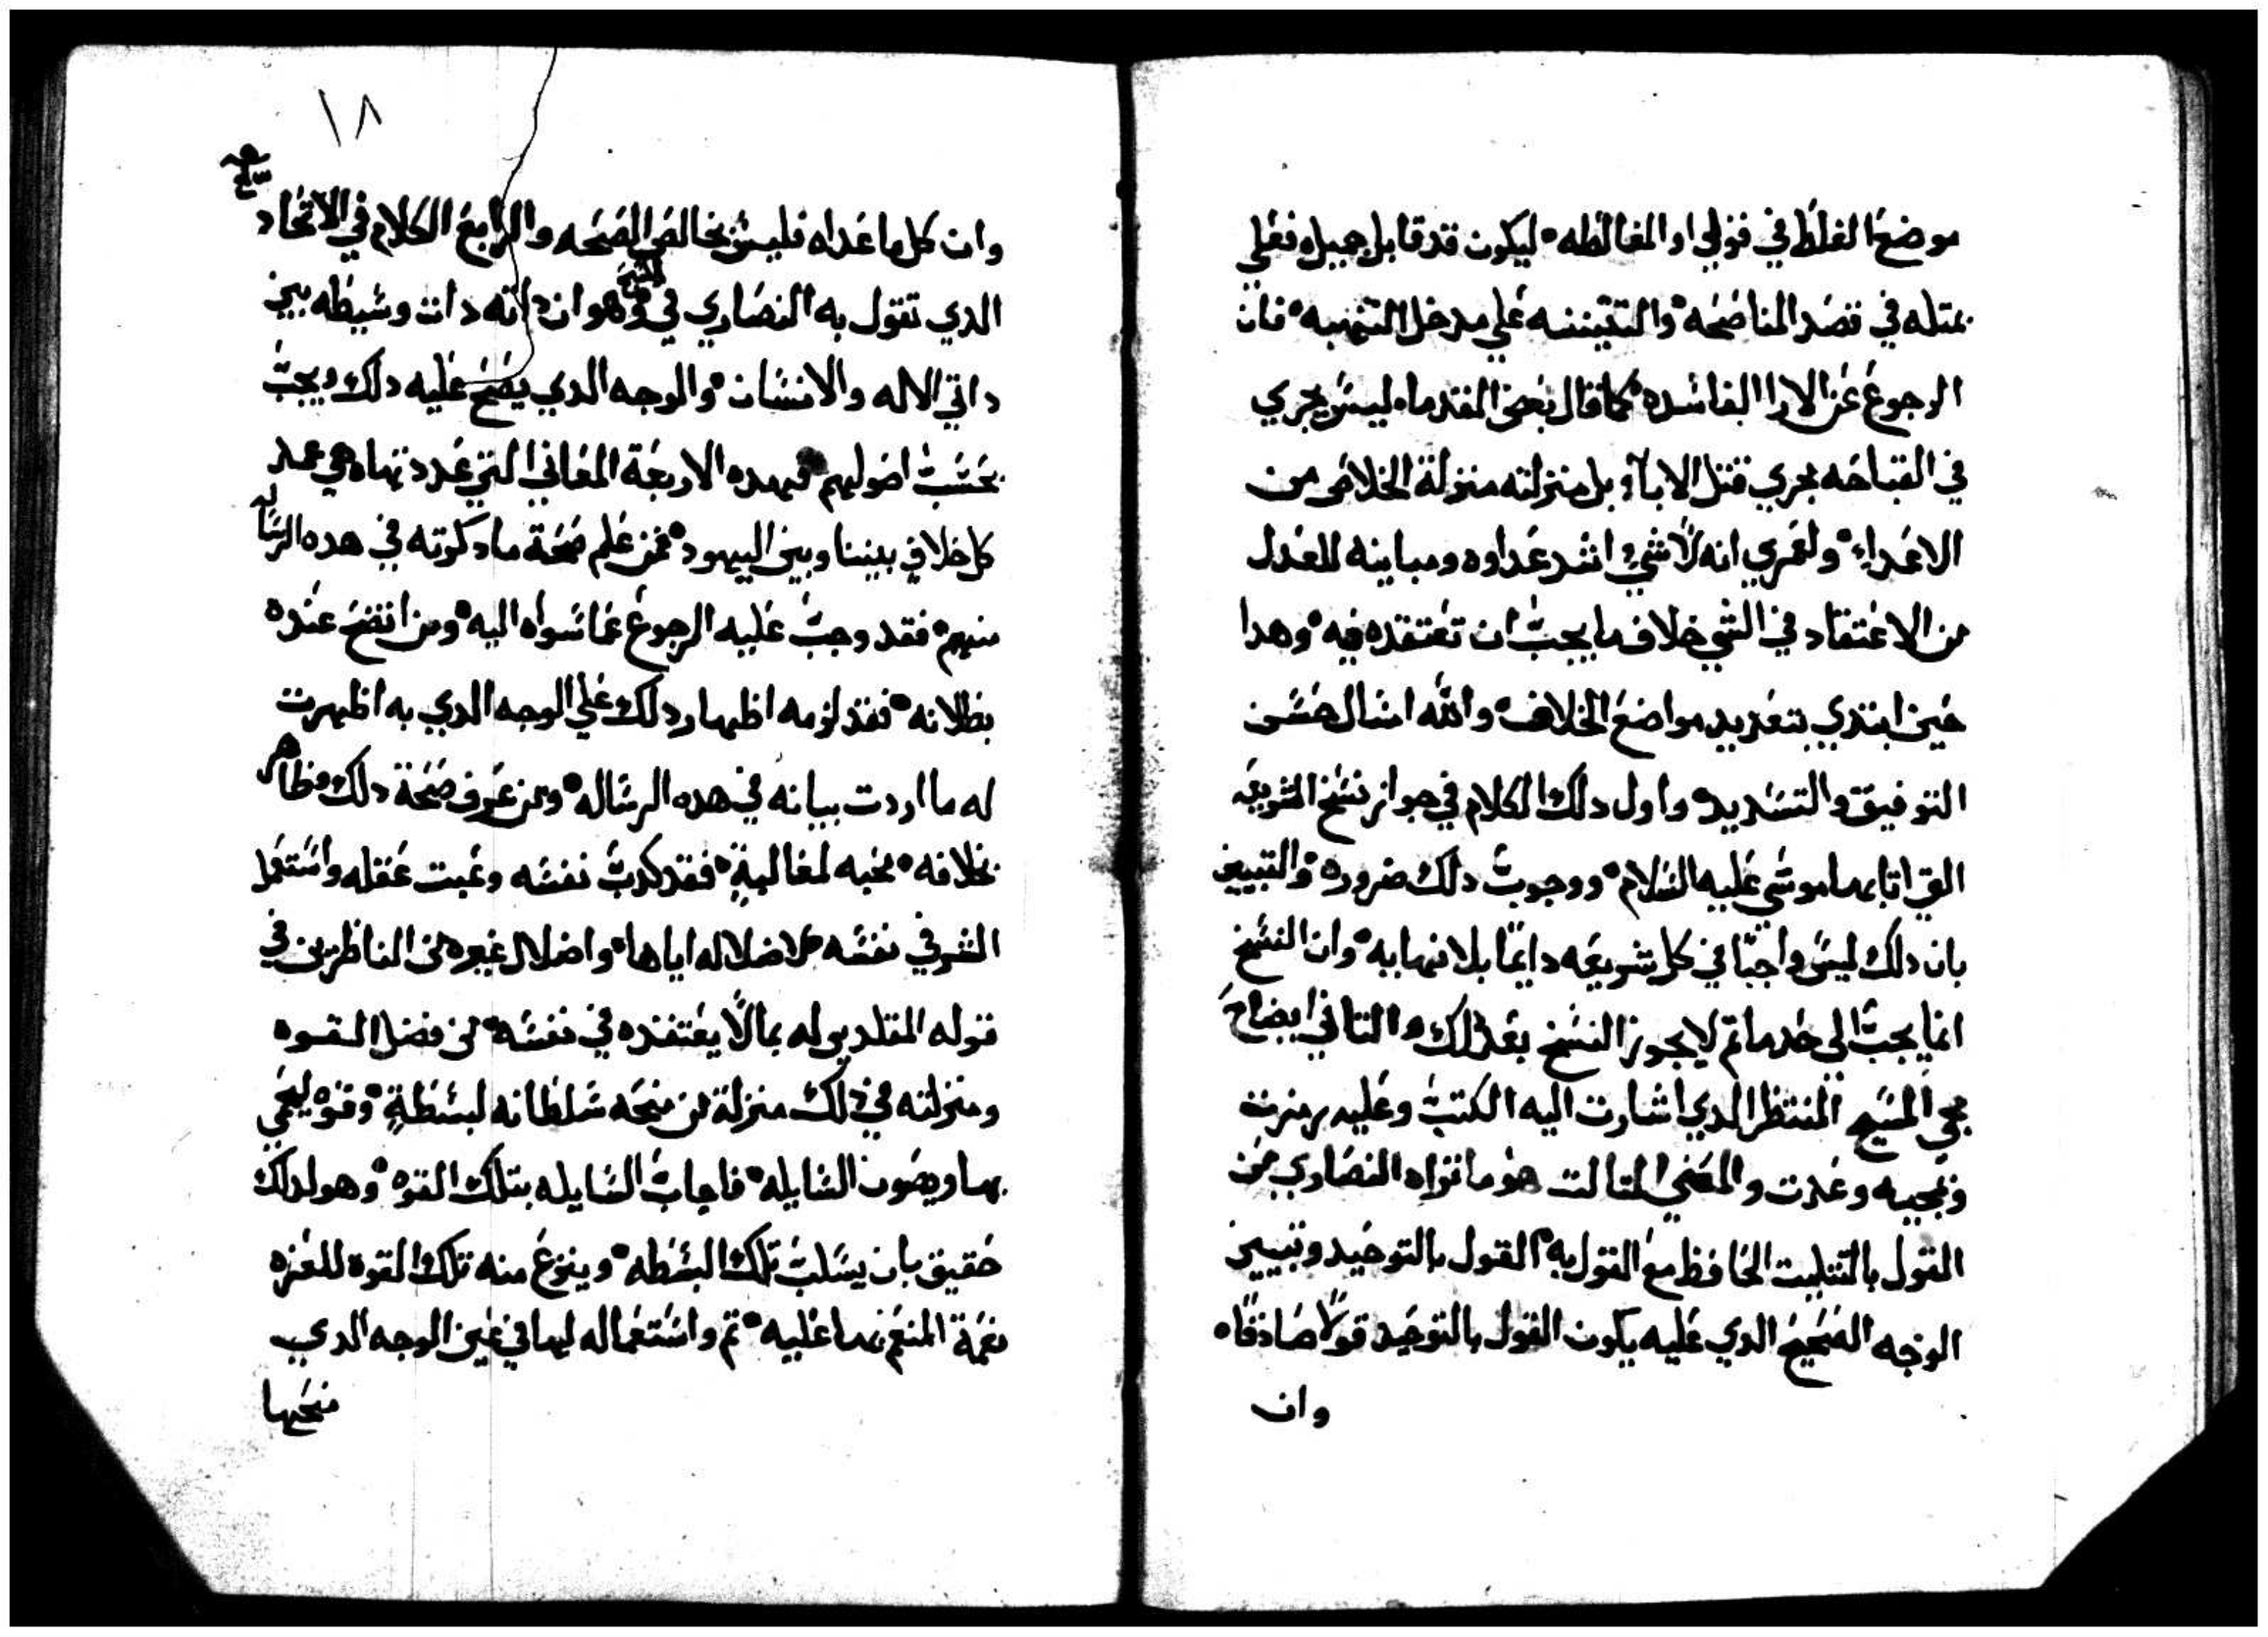 موضع الغلط في قولي او المغالطه ليكون قد قابل جميل فعلي
بمتله في قصد المناصحه والتقيننه علي مدخل الشبهه فان
الرجوع عن الارا الفاسده كما قال بعض القدماء ليس يجري
في القباحه مجري قتل الاباء بل منزلته منزلة الخلاص من
الاعداء ولعمري انه لا شي اشد عداوه ومباينه للعدل
من الاعتقاد في الشي خلاف ما يجب ان تعتقده فيه وهدا
حين ابتدي بتعديد مواضع الخلاف والله اسال حسن
التوفيق والتسديد واول دلك الكلام في جواز نسخ الشريعه
التي اتا بها موسي عليه السلام ووجوب دلك ضروره والتبيين
بان دلك ليس واجبًا في كل شريعه دايمًا بلا نهايه وان النسخ
انما يجب الي حد ما تم لا يجوز النسخ بعد دلك والتاني ايضاح
مجي المسيح المنتظر الدي اشارت اليه الكتب وعليه رمزت
وبمجيه وعدت والمعني التالت هو ما تراه النصاري من
القول بالتتليت الحافظ مع القول به القول بالتوحيد وتبيين
الوجه الصحيح الدي عليه يكون القول بالتوحيد قولًا صادقًا
وان
١٨
وان كل ما عداه فليس بخالص الصحه والرابع الكلام في الاتحاد
الدي تقول به النصاري في المسيح وهو ان داته دات وسيطه بين
داتي الاله والانسان والوجه الدي يصح عليه دلك ويجب
بحسب اصولهم فهده الاربعة المعاني التي عددتها هي عمد
كل خلاف بيننا وبين اليهود فمن علم صحة ما دكرته في هده الرساله
منهم فقد وجب عليه الرجوع عما سواه اليه ومن اتضح عنده
بطلانه فقد لزمه اظهار دلك علي الوجه الدي به اظهرت
له ما اردت بيانه في هده الرساله ومن عرف صحة دلك وظاهر
بخلافه محبه لمغالبةٍ فقد كدب نفسه وغبت عقله واستعمل
الشر في نفسه لاضلاله اياها واضلال غيره من الناظرين في
قوله المقلدين له بما لا يعتقده في نفسه من فضل القوه
ومنزلته في دلك منزلة من منحه سلطانه لبسطةٍ وقوه ليحمي
بها ويصون السابله فاجاب السابله بتلك القوه وهو لدلك
حقيق بان يسلب تلك البسطه وينزع منه تلك القوه
نعمة المنعم بها عليه تم واستعماله لها في غير الوجه الدي
منحها